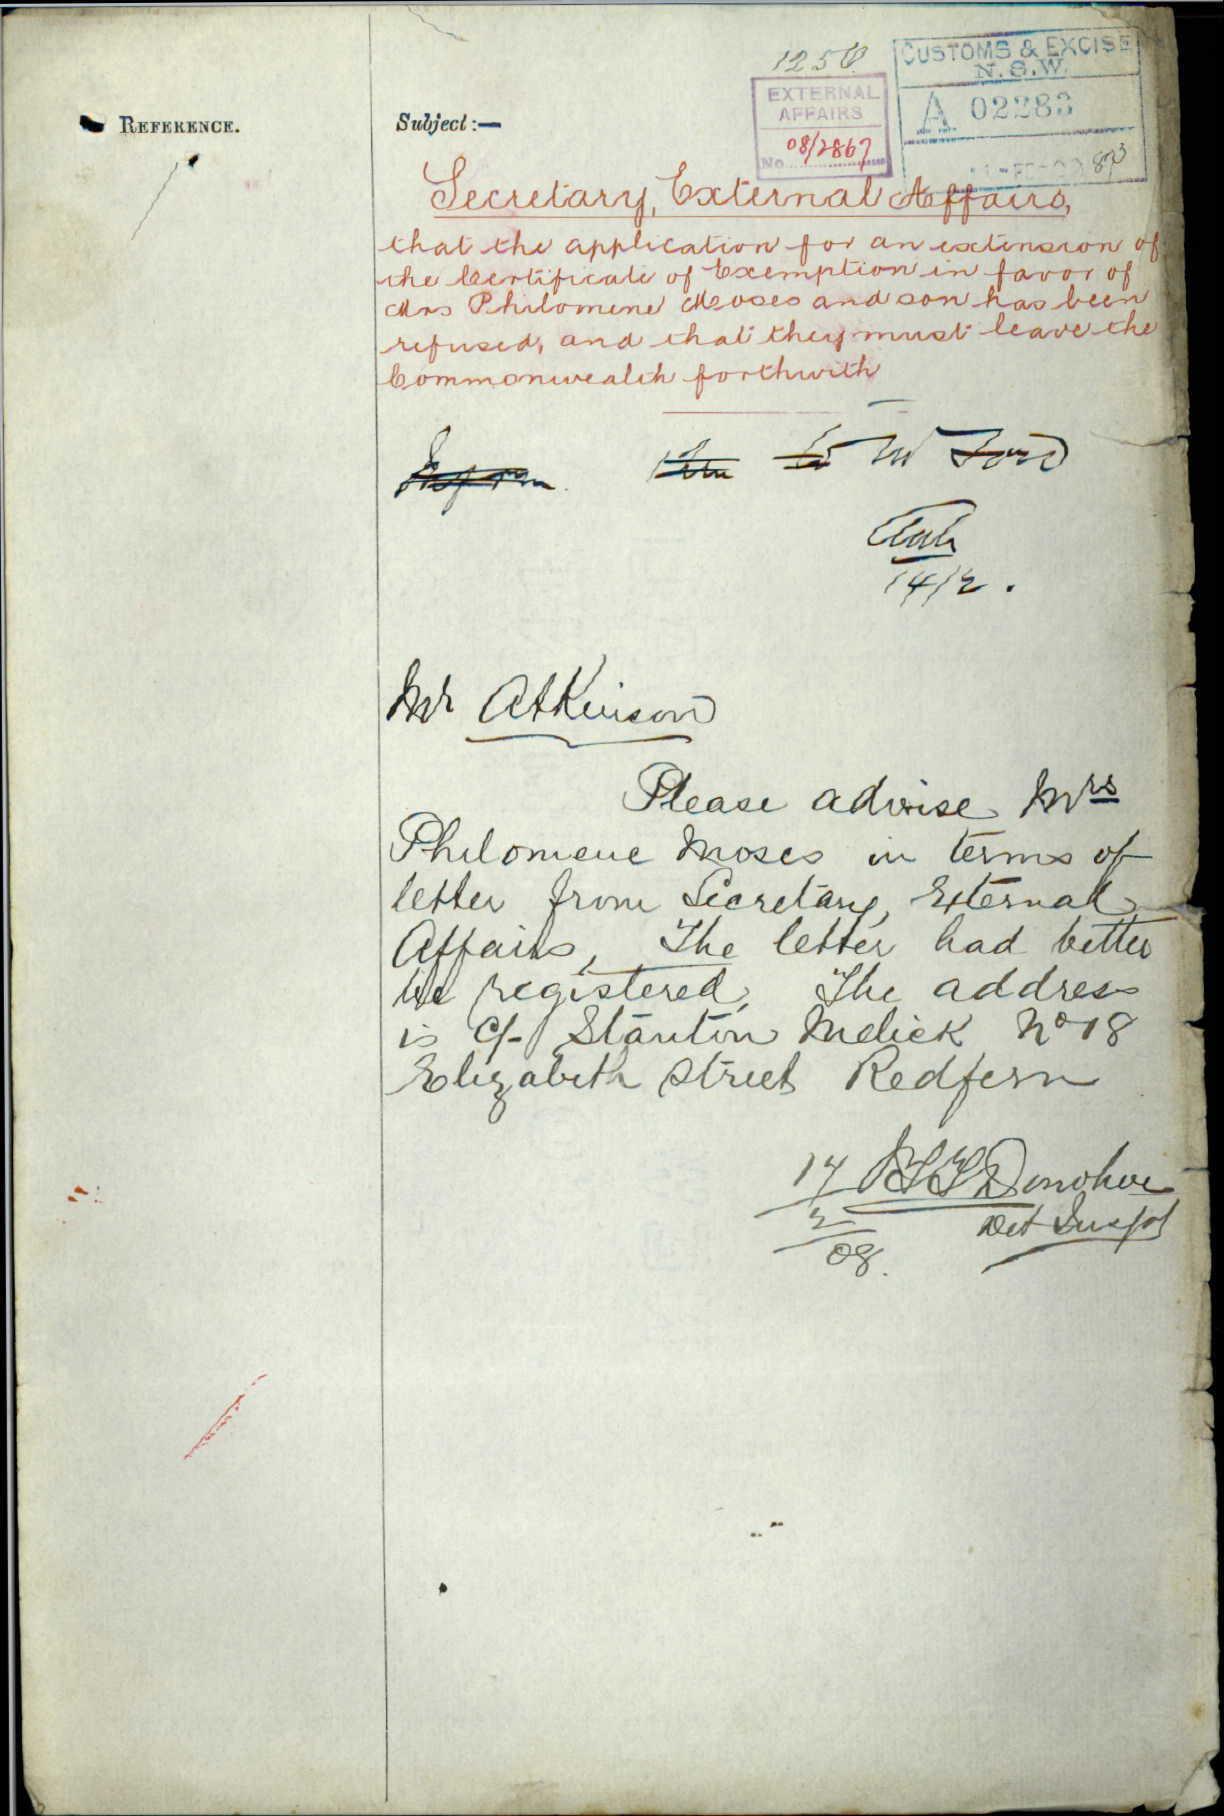 CUSTOMS & EXCISE
N.S.W.
A 02283
EXTERNAL
AFFAIRS
No. 08/2867
REFERENCE.
Subject:—
Secretary, External Affairs,
that the application for an extension of
the Certificate of Exemption in favor of
Mrs Philomene Moses and son has been
refused, and that they must leave the
Commonwealth forthwith
Inform
14/2.
Mr Atkinson
Please advise Mrs
Philomene Moses in terms of
letter from Secretary, External
Affairs, The letter had better
be registered, The address
is C/- Stanton Melick No 18
Elizabeth Street Redfern
Donohoe
Det Inspr
2
08.